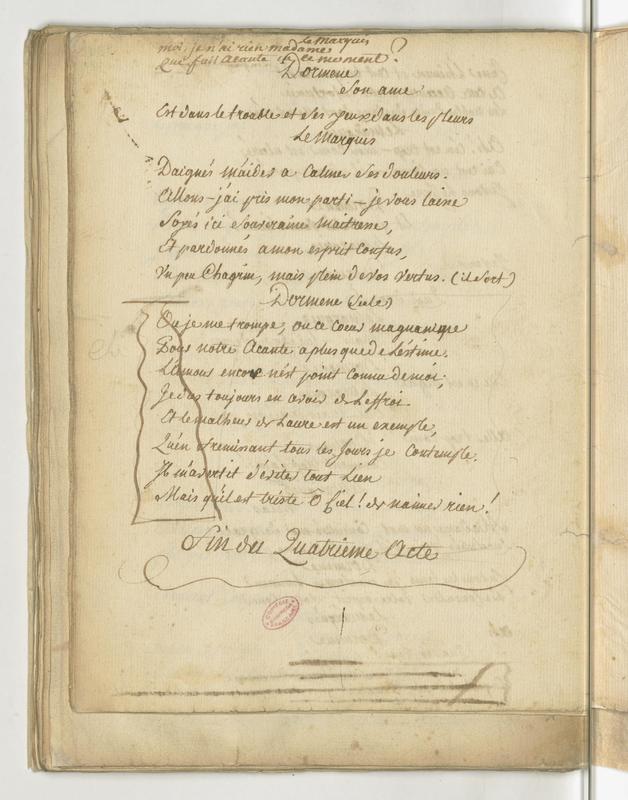 le Marquis
moi, je n'ai rien madame
Que fait Acante en ce moment?
Dormene
Son ame
Est dans le trouble et ses yeux dans les pleurs
Le Marquis
Daignés m'aider a calmer ses douleurs.
Allons - j'ai pris mon parti - je vous laisse
Soyés ici souveraine maitresse,
Et pardonnés a mon esprit confus,
Un peu Chagrin, mais plein de vos vertus. (il sort)
Dormene (seule)
Ou je me trompe, ou ce coeur magnanime
Pour notre Acante a plus que de l'estime.
L'amour encore n'est point connu de moi;
Je dus toujours en avoir de l'effroi
Et le malheur de Laure est un exemple,
Qu'en fremissant tous les jours je contemple.
Il m'avertit d'éviter tout lien
Mais qu'il est triste O Ciel! de n'aimer rien!
Fin du Quatrieme Acte